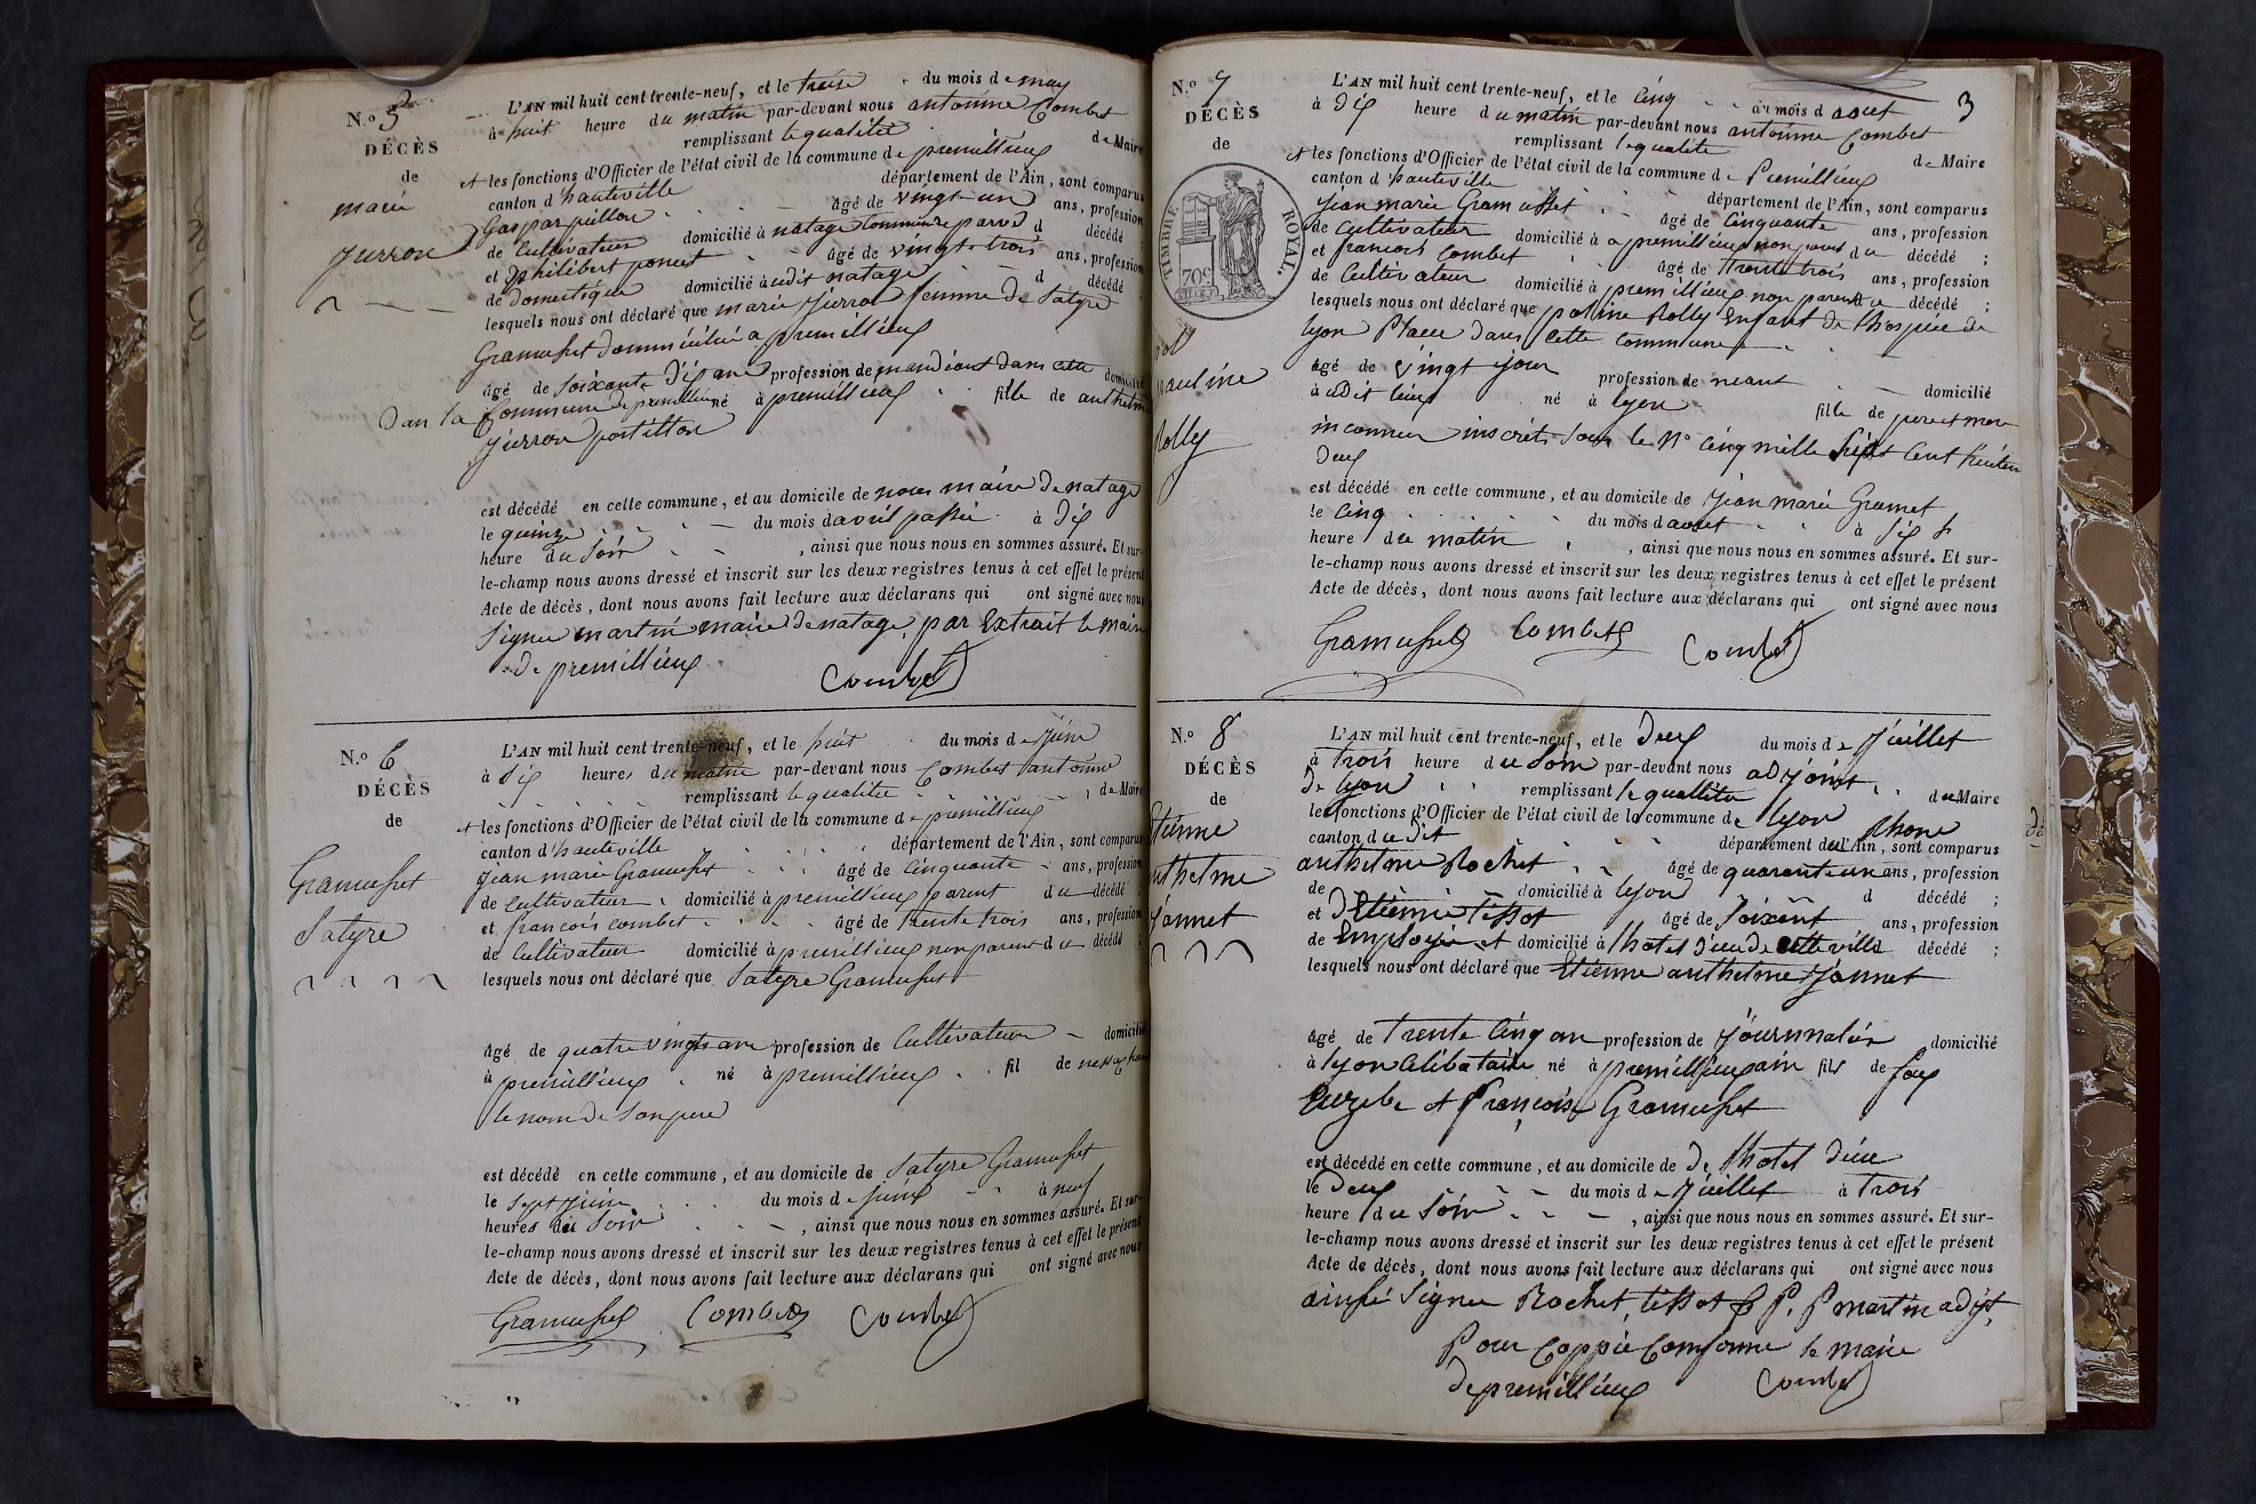 N.º 5
DÉCÈS
de
marie
Jurron
L'AN mil huit cent trente-neuf, et le treise du mois de may
à huit heure du matin par-devant nous antoinne Combet
remplissant le qualitée de Maire
et les fonctions d'Officier de l'état civil de la commune de premillieux
canton d'hauteville département de l'Ain, sont comparus
Gaspar pillon âgé de vingt-un ans, profession
de Cultivateur domicilié à natage Commune parvé d décédé ;
et philibert poncet âgé de vingt-trois ans, profession
de Domestique domicilié à udit natage d décédé ;
lesquels nous ont déclaré que marie femme de Satyre
Gramusset domiciliée a premillieux
âgé de soixante Dix ans profession de mandiant dans cette domicilié
Dans la Commune de premillieux né à premillieux fille de anthelme
postillon
est décédé en cette commune, et au domicile de nous maire de natage
le quinze du mois d'avril passée à Dix
heure du Soir , ainsi que nous nous en sommes assuré. Et sur-
le-champ nous avons dressé et inscrit sur les deux registres tenus à cet effet le présent
Acte de décès, dont nous avons fait lecture aux déclarans qui ont signé avec nous
Signer martin maire de natage, par Extrait le maire
de premillieux
Combet
N.º 6
DÉCÈS
de
Gramusset
Satyre
L'AN mil huit cent trente-neuf, et le huit du mois de Juin
à Dix heures du matin par-devant nous Combet antoinne
remplissant le qualitée de Maire
et les fonctions d'Officier de l'état civil de la commune de premillieux
canton d'hauteville département de l'Ain, sont comparus
Jean marie Gramusset âgé de Cinquante ans, profession
de Cultivateur domicilié à premillieux parent du décédé ;
et francois combet âgé de trente trois ans, profession
de Cultivateur domicilié à premillieux non parent du décédé ;
lesquels nous ont déclaré que Satyre Gramusset
âgé de quatre vingts ans profession de Cultivateur domicilié
à premillieux né à premillieux fil de
le nom de Son pere
est décédé en cette commune, et au domicile de Satyre Gramusset
le Sept Juin du mois de Juin à neuf
heures du Soir , ainsi que nous nous en sommes assuré. Et sur-
le-champ nous avons dressé et inscrit sur les deux registres tenus à cet effet le présent
Acte de décès, dont nous avons fait lecture aux déclarans qui ont signé avec nous
Gramusset Combet Combet
3
N.º 7
DÉCÈS
de
TIMBRE ROYAL.
70c
pauline
Rolly
L'AN mil huit cent trente-neuf, et le Cinq du mois d aout
à Dix heure du matin par-devant nous antoinne Combet
remplissant le qualite de Maire
et les fonctions d'Officier de l'état civil de la commune de Premillieux
canton d'hauteville département de l'Ain, sont comparus
Jean marie Gramusset âgé de Cinquante ans, profession
de Cultivateur domicilié à a premillieux non parent du décédé ;
et francois Combet âgé de trente trois ans, profession
de Cultivateur domicilié à premillieux non parent du décédé ;
lesquels nous ont déclaré que pauline Rolly Enfant de l'hospice de
lyon Place dans cette commune
âgé de vingt jour profession de neant domicilié
à udit lieux né à lyon fille de pere et mere
inconnu inscrits sous le Nº Cinq mille Sept Cent trente
Deux
est décédé en cette commune, et au domicile de Jean marie Gramet
le Cinq du mois d aout à Six h
heure du matin , ainsi que nous nous en sommes assuré. Et sur-
le-champ nous avons dressé et inscrit sur les deux registres tenus à cet effet le présent
Acte de décès, dont nous avons fait lecture aux déclarans qui ont signé avec nous
Gramusset Combet Combet
N.º 8
DÉCÈS
de
Etienne
anthelme
Jannet
L'AN mil huit cent trente-neuf, et le Deux du mois de Juillet
à trois heure du Soir par-devant nous adjoint
De lyon remplissant le quallite du Maire
les fonctions d'Officier de l'état civil de la commune de lyon
canton du dit Rhone département de l'Ain, sont comparus
anthelme Rochet âgé de quarante un ans, profession
de domicilié à lyon d décédé ;
et Etienne Tissot âgé de Soixent ans, profession
de Employé et domicilié à lhotel Dieu de cette ville décédé ;
lesquels nous ont déclaré que Etienne anthelme Jannet
âgé de Trente Cinq an profession de Journnalier domicilié
à lyon Celibataire né à premillieux ain fils de feux
Euzebe et françoise Gramusset
est décédé en cette commune, et au domicile de De lhotel Dieu
le Deux du mois de Juillet à trois
heure du Soir , ainsi que nous nous en sommes assuré. Et sur-
le-champ nous avons dressé et inscrit sur les deux registres tenus à cet effet le présent
Acte de décès, dont nous avons fait lecture aux déclarans qui ont signé avec nous
ainsi Signer Rochet, tissot P. P martin adjt,
Pour Coppie Comforme le maire
de premillieux Combet